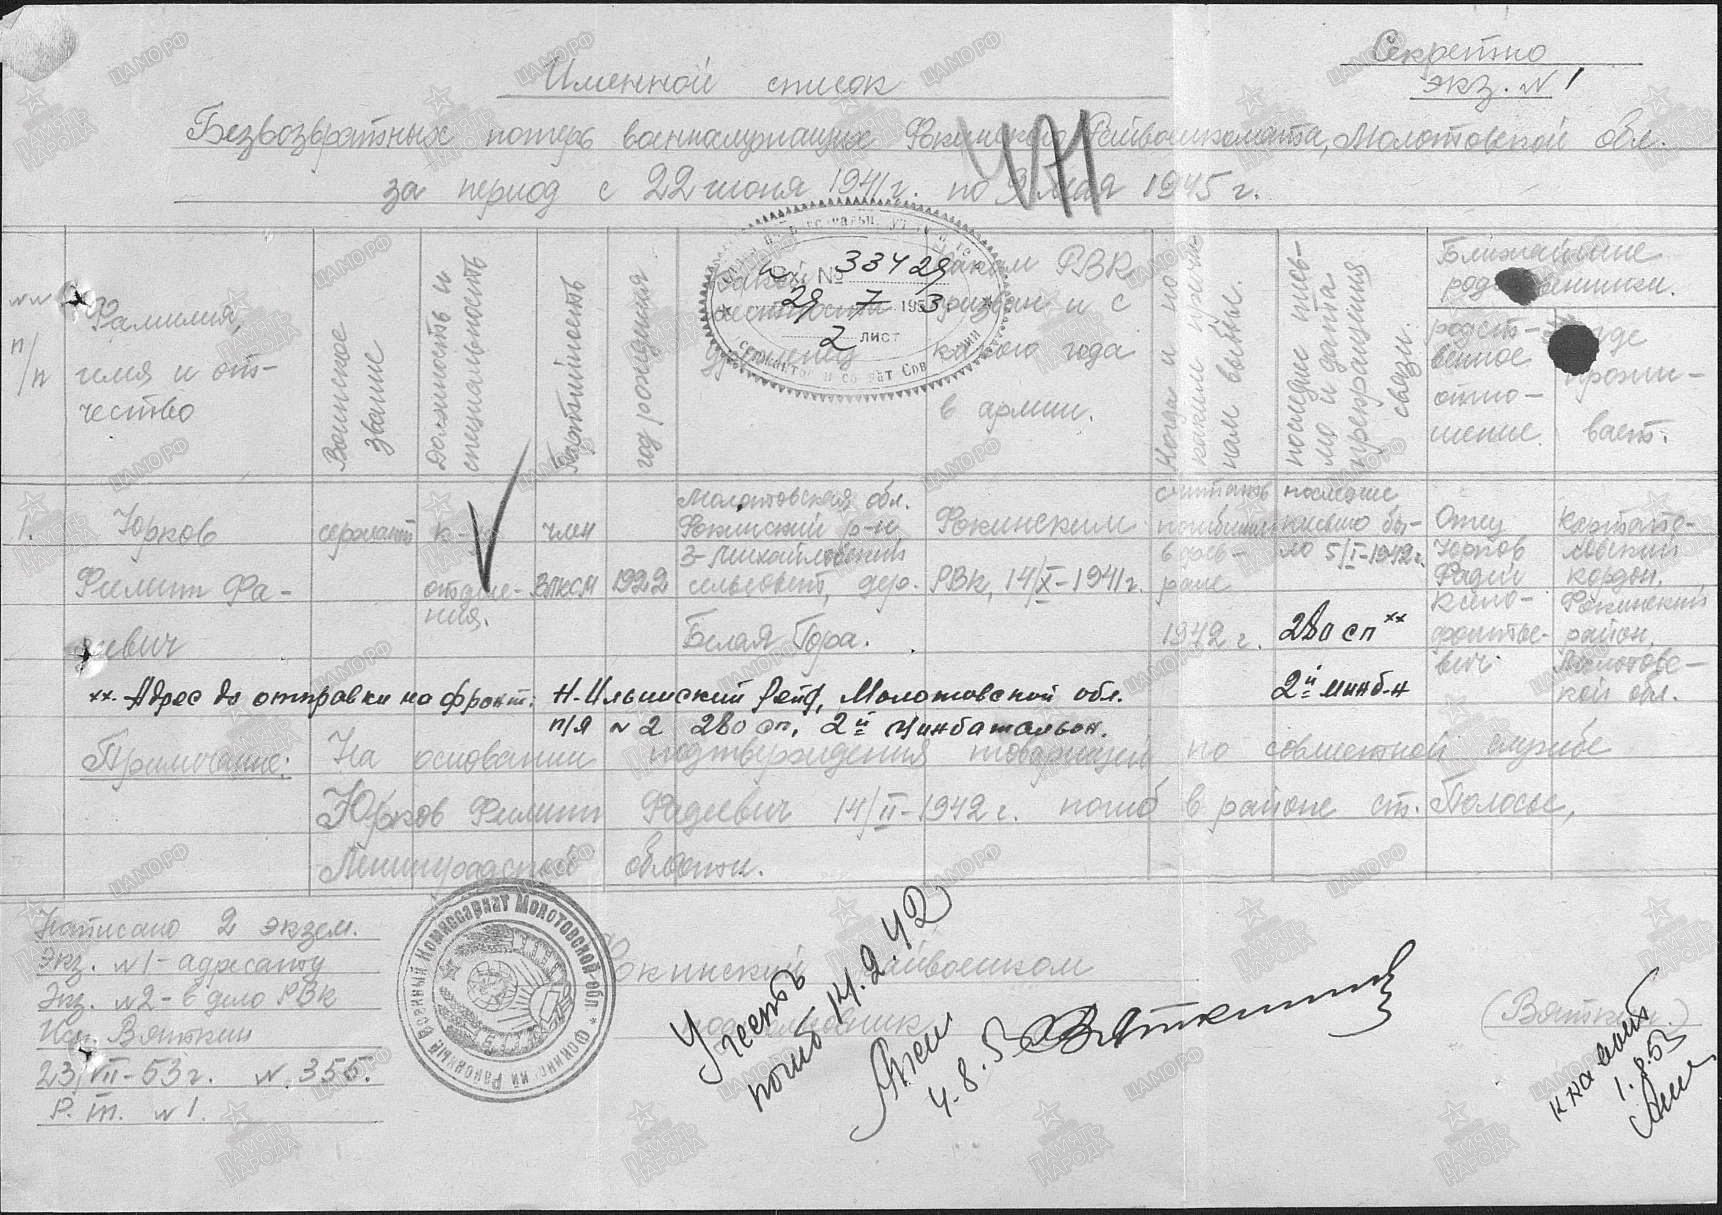 Секретно
экз. № 1
Именной список
Безвозвратных потерь военнослужащих Фокинского Райвоенкомата, Молотовской обл.
за период с 22 июня 1941 г. по 9 мая 1945 г.
№№ п/п
Фамилия,
имя и от-
чество
Воинское
звание
Должность и
специальность
Партийность
год рождения
вх. №33429
29 7 1953
2 лист
каким РВК
призван и с
какого года
в армии.
Когда и по
каким причи-
нам выбыл.
последне пись-
мо и дата
прекращения
связи.
Ближайшие
родственники.
родст-
венное
отно-
шение.
где
прожи-
вает.
1.
Юрков
Филипп Фа-
деевич
сержант
к-р
отделе-
ния.
член
ВЛКСМ
1922
Молотовская обл.
Фокинский р-н
З-Михайловский
сельсовет, дер.
Белая Гора.
Фокинским
РВК, 14/X-1941г.
считать
погибшим
в фев-
рале
1942 г.
последне
письмо бы-
ло 5/I-1942г.
280 сп xx
2й минб-н
Отец
Юрков
Фадей
вич
Фокинский
район,
Молотовс-
кой обл.
кордон.
xx. Адрес до отправки на фронт: Н-Ильинский Рейд, Молотовской обл.
п/я №2 280 сп, 2й Минбатальон.
Примечание: На основании подтверждения товарищей по совместной службе
Юрков Филипп Фадеевич 14/II-1942 г. погиб в районе ст. Полосье,
Ленинградской области.
Написано 2 экзем.
Экз. №1 - адресату
Экз. №2 - в дело РВК
Исп. Вяткин
23/VII-53г. №355.
Р. т. №1.
Фокинский Районный Военный Комиссариат Молотовской обл.
Фокинский Райвоенком
подполковник
(Вяткин.)
Учесть
погиб 14.2.42
4.8.53
1.8.53